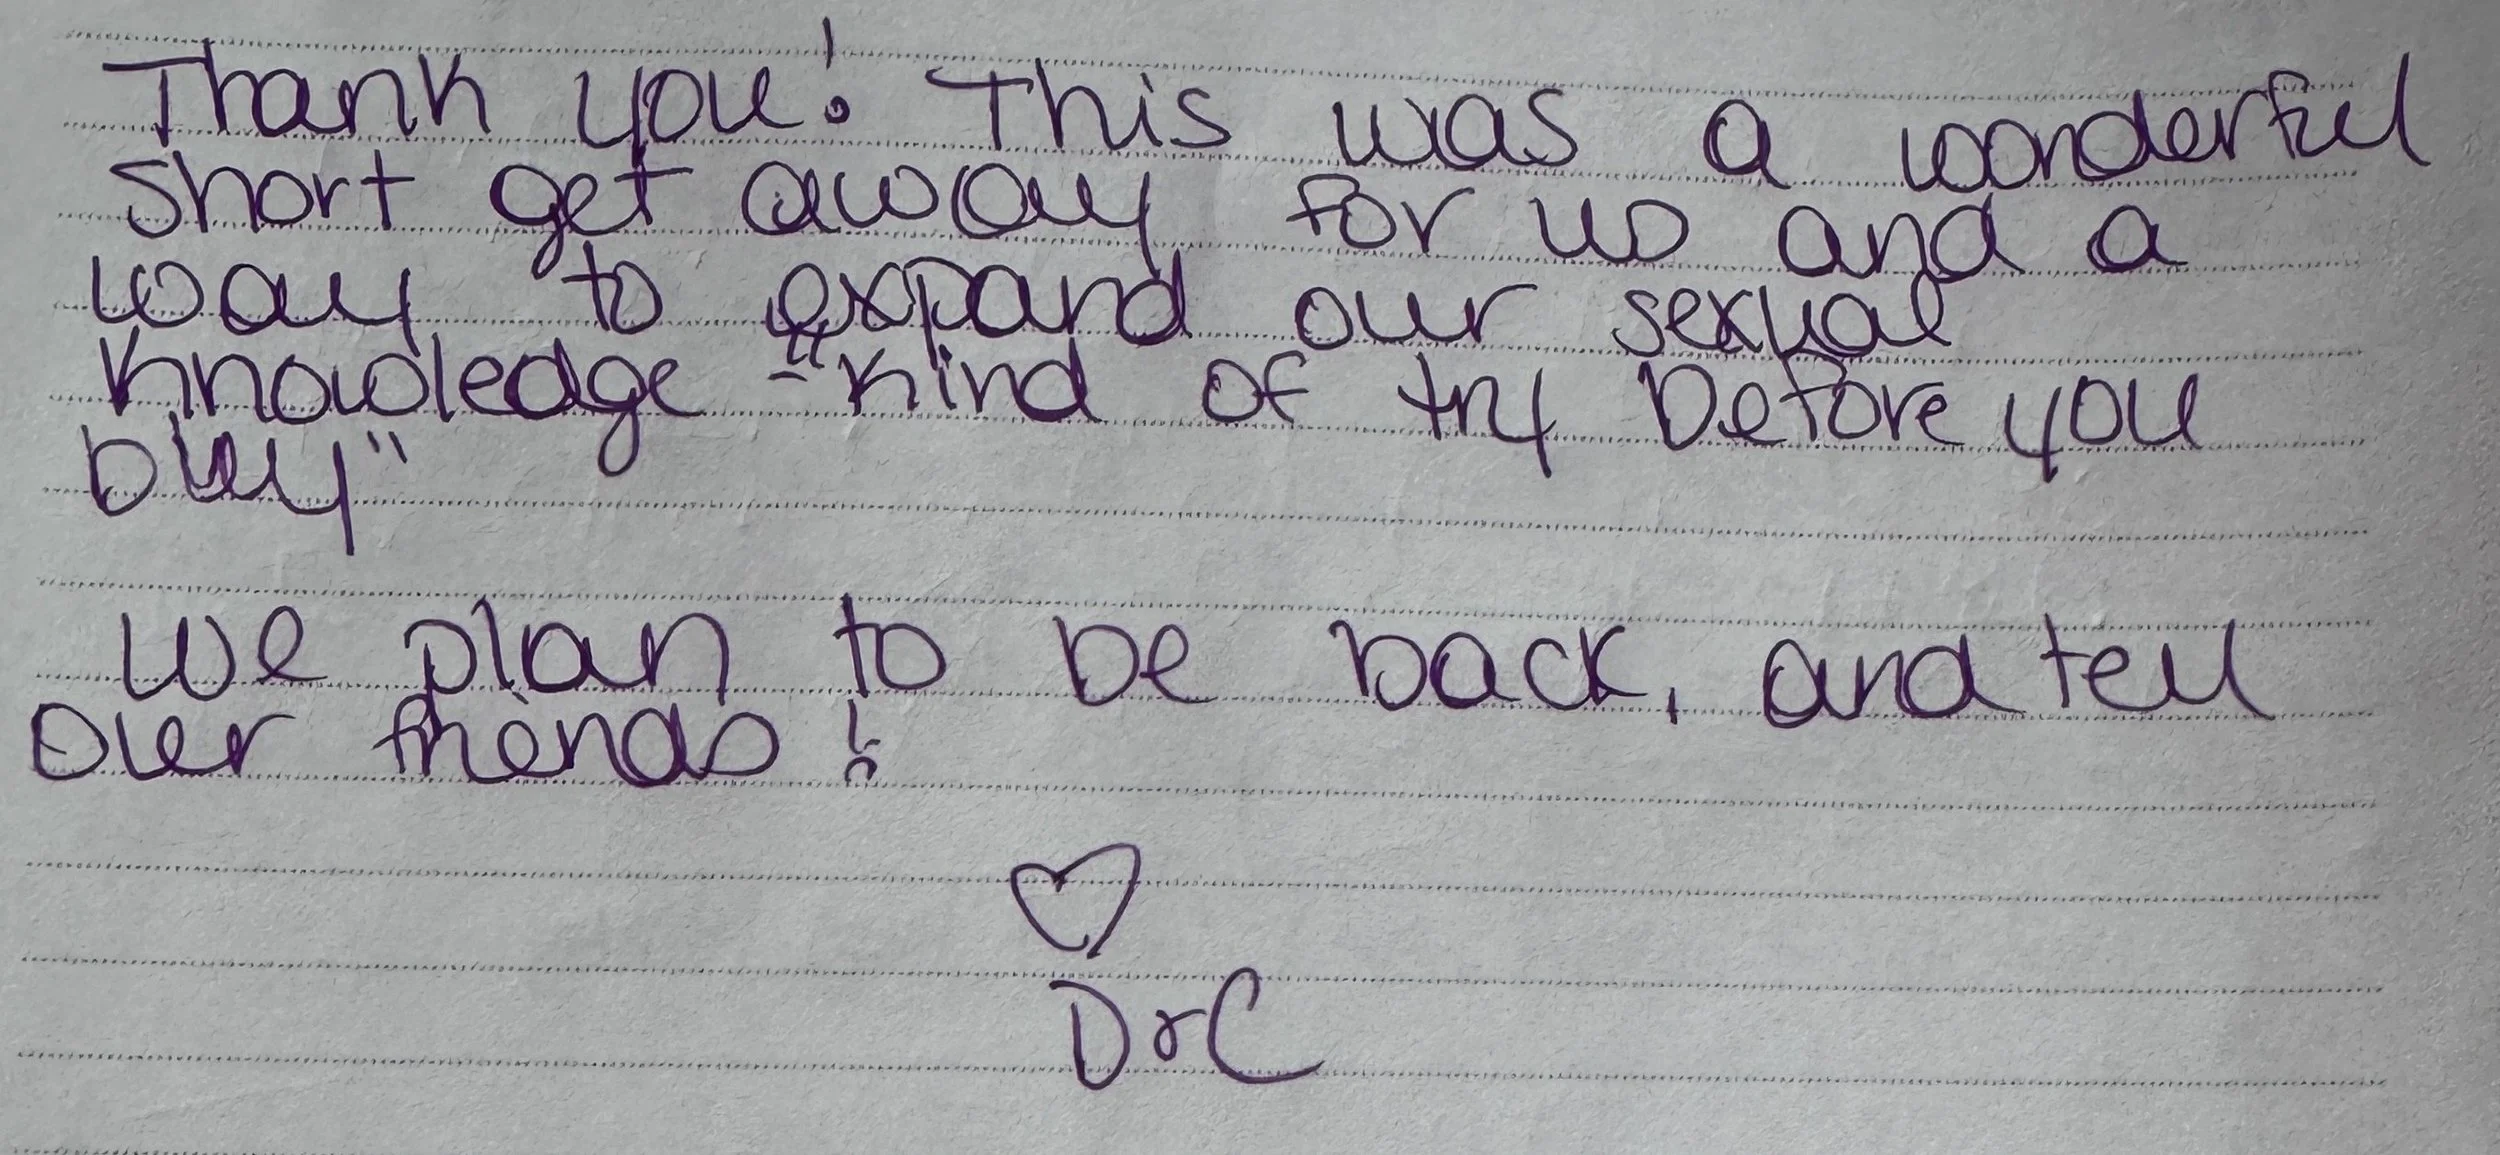 Thank you! This was a wonderful
short get away for us and a
way to expand our sexual
knowledge - "kind of try before you
buy"
We plan to be back, and tell
our friends!
♡
D & C